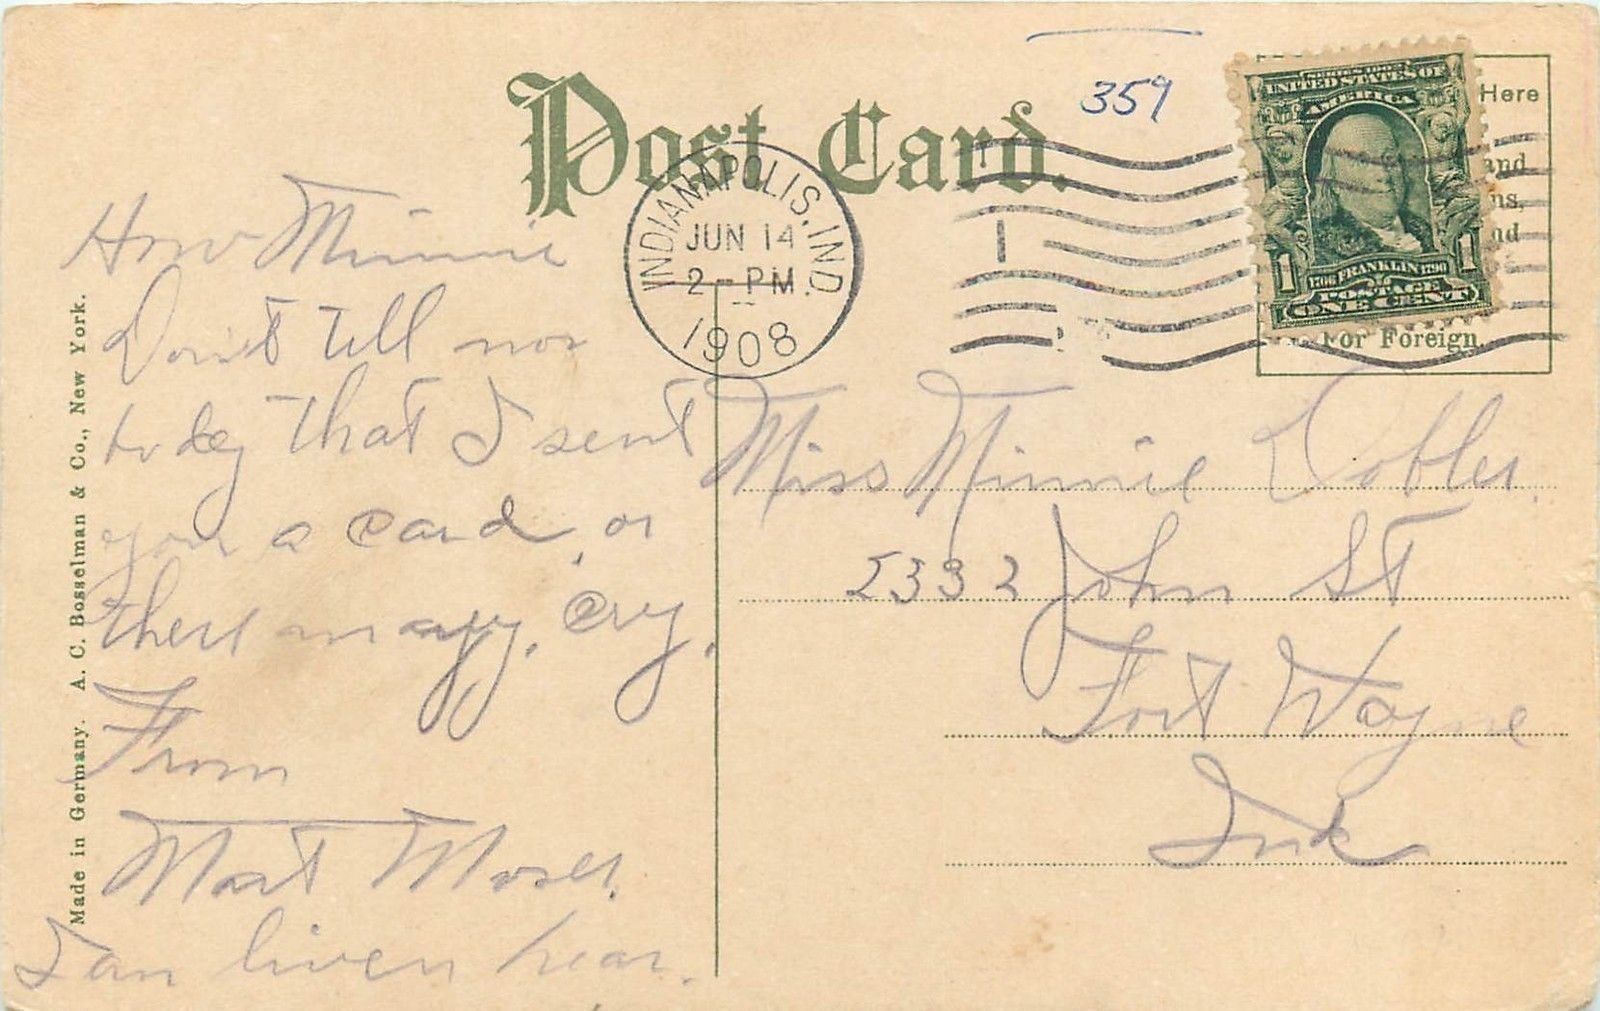 Post Card.
359
Here
and
ns,
nd
For Foreign.
SERIES 1902
UNITED STATES OF
AMERICA
1 1
1706 FRANKLIN 1790
POSTAGE
ONE CENT
INDIANAPOLIS, IND.
JUN 14
2 - PM
1908
1
Made in Germany. A. C. Bosselman & Co., New York.
Minnie
Don't tell
that I sent
you a card, or
there may, cry.
From
Mart Moser.
I am liven hear.
Miss Minnie Dobler.
2332 John St
Fort Wayne
Ind